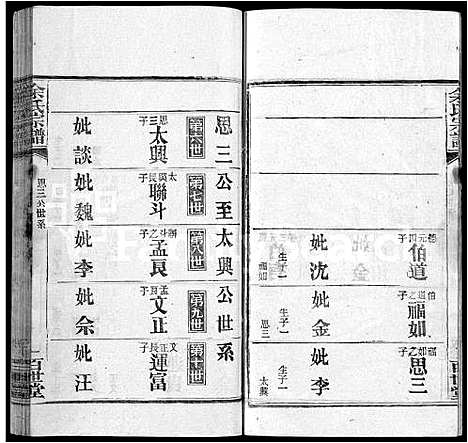 余氏宗譜
德元四子
伯道
妣沈
生子一
福如
伯道之子
福如
妣金
生子一
思三
福如之子
思三
妣李
生子一
太興
百世堂
思三公至太興公世系
第六世
第七世
第八世
第九世
第十世
思三子
太興
妣談
太興長子
聯斗
妣魏
聯斗之子
孟良
妣李
孟良子
文正
妣余
文正長子
運富
妣汪
余氏宗譜
思三公世系
一
百世堂